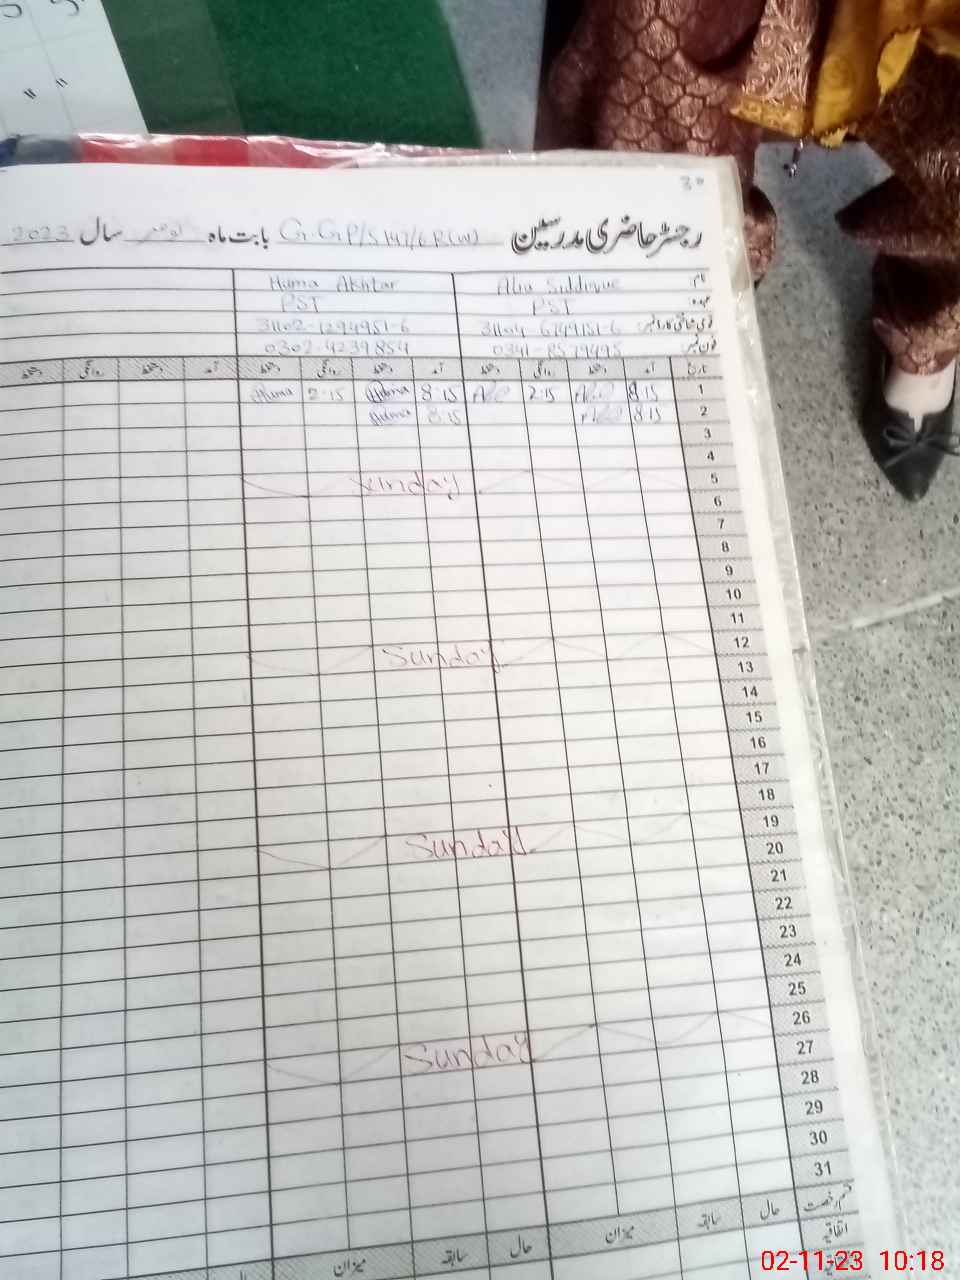 30
رجسٹر حاضری مدرسین G.G.P/S 141/6R(W) بابت ماہ نومبر سال 2023
نام: Alia Siddique Huma Akhtar
عہدہ: PST PST
قومی شناختی کارڈ نمبر: 31104 6749151-6 31102-1294951-6
فون نمبر: 0341-8579495 0302-4239854
تاریخ آمد دستخط روانگی دستخط آمد دستخط روانگی دستخط آمد دستخط روانگی دستخط
1 8:15 2:15 8:15 Huma 2:15 Huma
2 8:15 8:15 Huma
3
4
5 Sunday
6
7
8
9
10
11
12 Sunday
13
14
15
16
17
18
19 Sunday
20
21
22
23
24
25
26 Sunday
27
28
29
30
31
قسم رخصت حال سابقہ میزان حال سابقہ میزان حال
اتفاقیہ
02-11-23 10:18